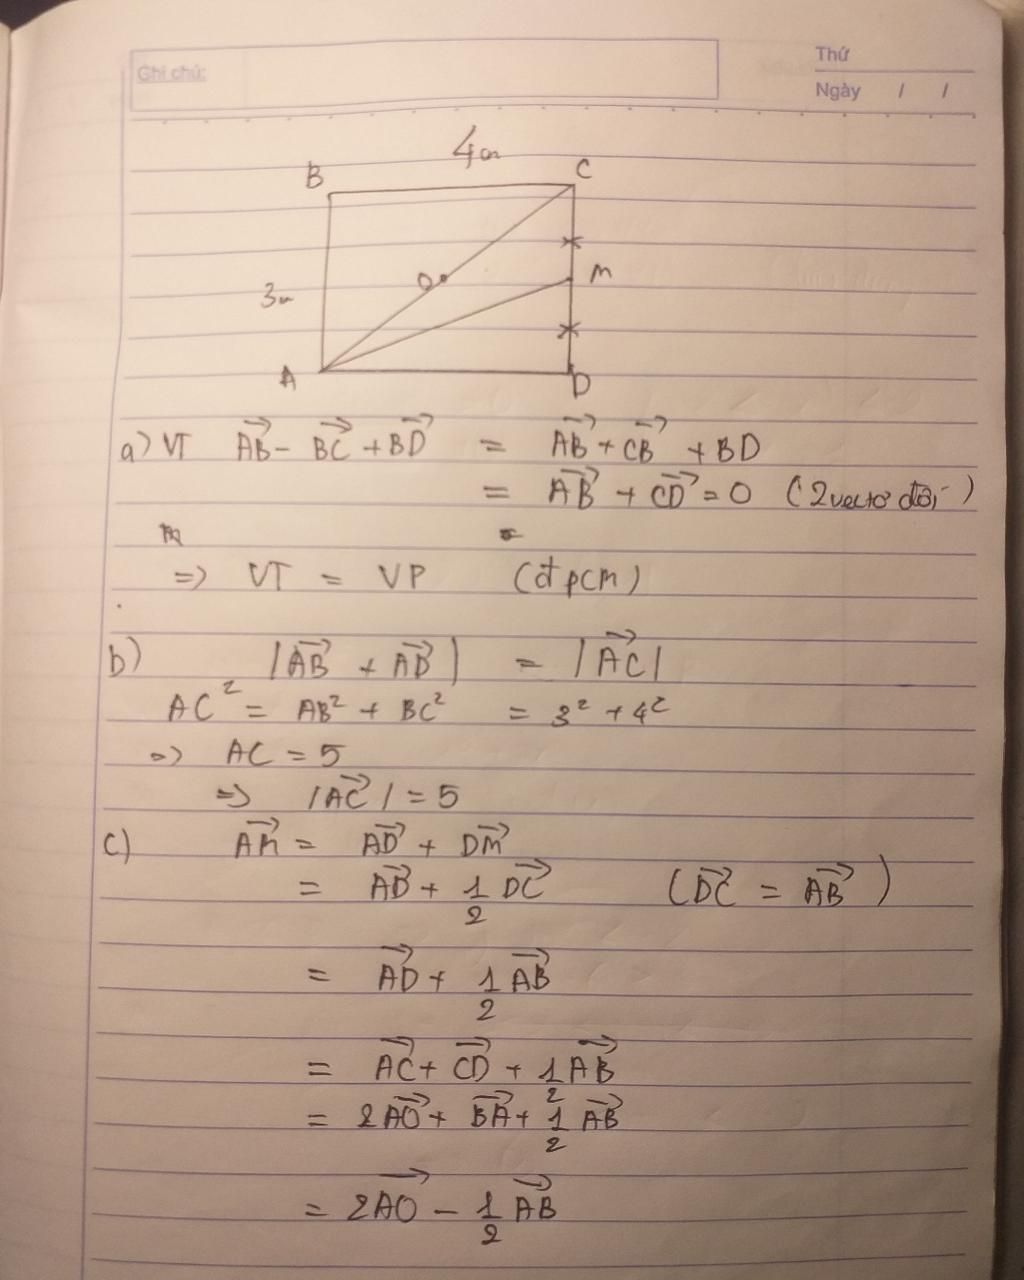 Ghi chú:
Thứ
Ngày / /
4cm
B
C
O
M
3cm
A
D
a) VT $\overrightarrow{AB} - \overrightarrow{BC} + \overrightarrow{BD} = \overrightarrow{AB} + \overrightarrow{CB} + BD$
$= \overrightarrow{AB} + \overrightarrow{CD} = 0$ (2 vectơ đối)
=> VT = VP (đpcm)
b) $|\overrightarrow{AB} + \overrightarrow{AD}| = |\overrightarrow{AC}|$
$AC^2 = AB^2 + BC^2 = 3^2 + 4^2$
=> AC = 5
=> $|\overrightarrow{AC}| = 5$
c) $\overrightarrow{AM} = \overrightarrow{AD} + \overrightarrow{DM}$
$= \overrightarrow{AD} + \frac{1}{2}\overrightarrow{DC}$ $(\overrightarrow{DC} = \overrightarrow{AB})$
$= \overrightarrow{AD} + \frac{1}{2}\overrightarrow{AB}$
$= \overrightarrow{AC} + \overrightarrow{CD} + \frac{1}{2}\overrightarrow{AB}$
$= 2\overrightarrow{AO} + \overrightarrow{BA} + \frac{1}{2}\overrightarrow{AB}$
$= 2\overrightarrow{AO} - \frac{1}{2}\overrightarrow{AB}$